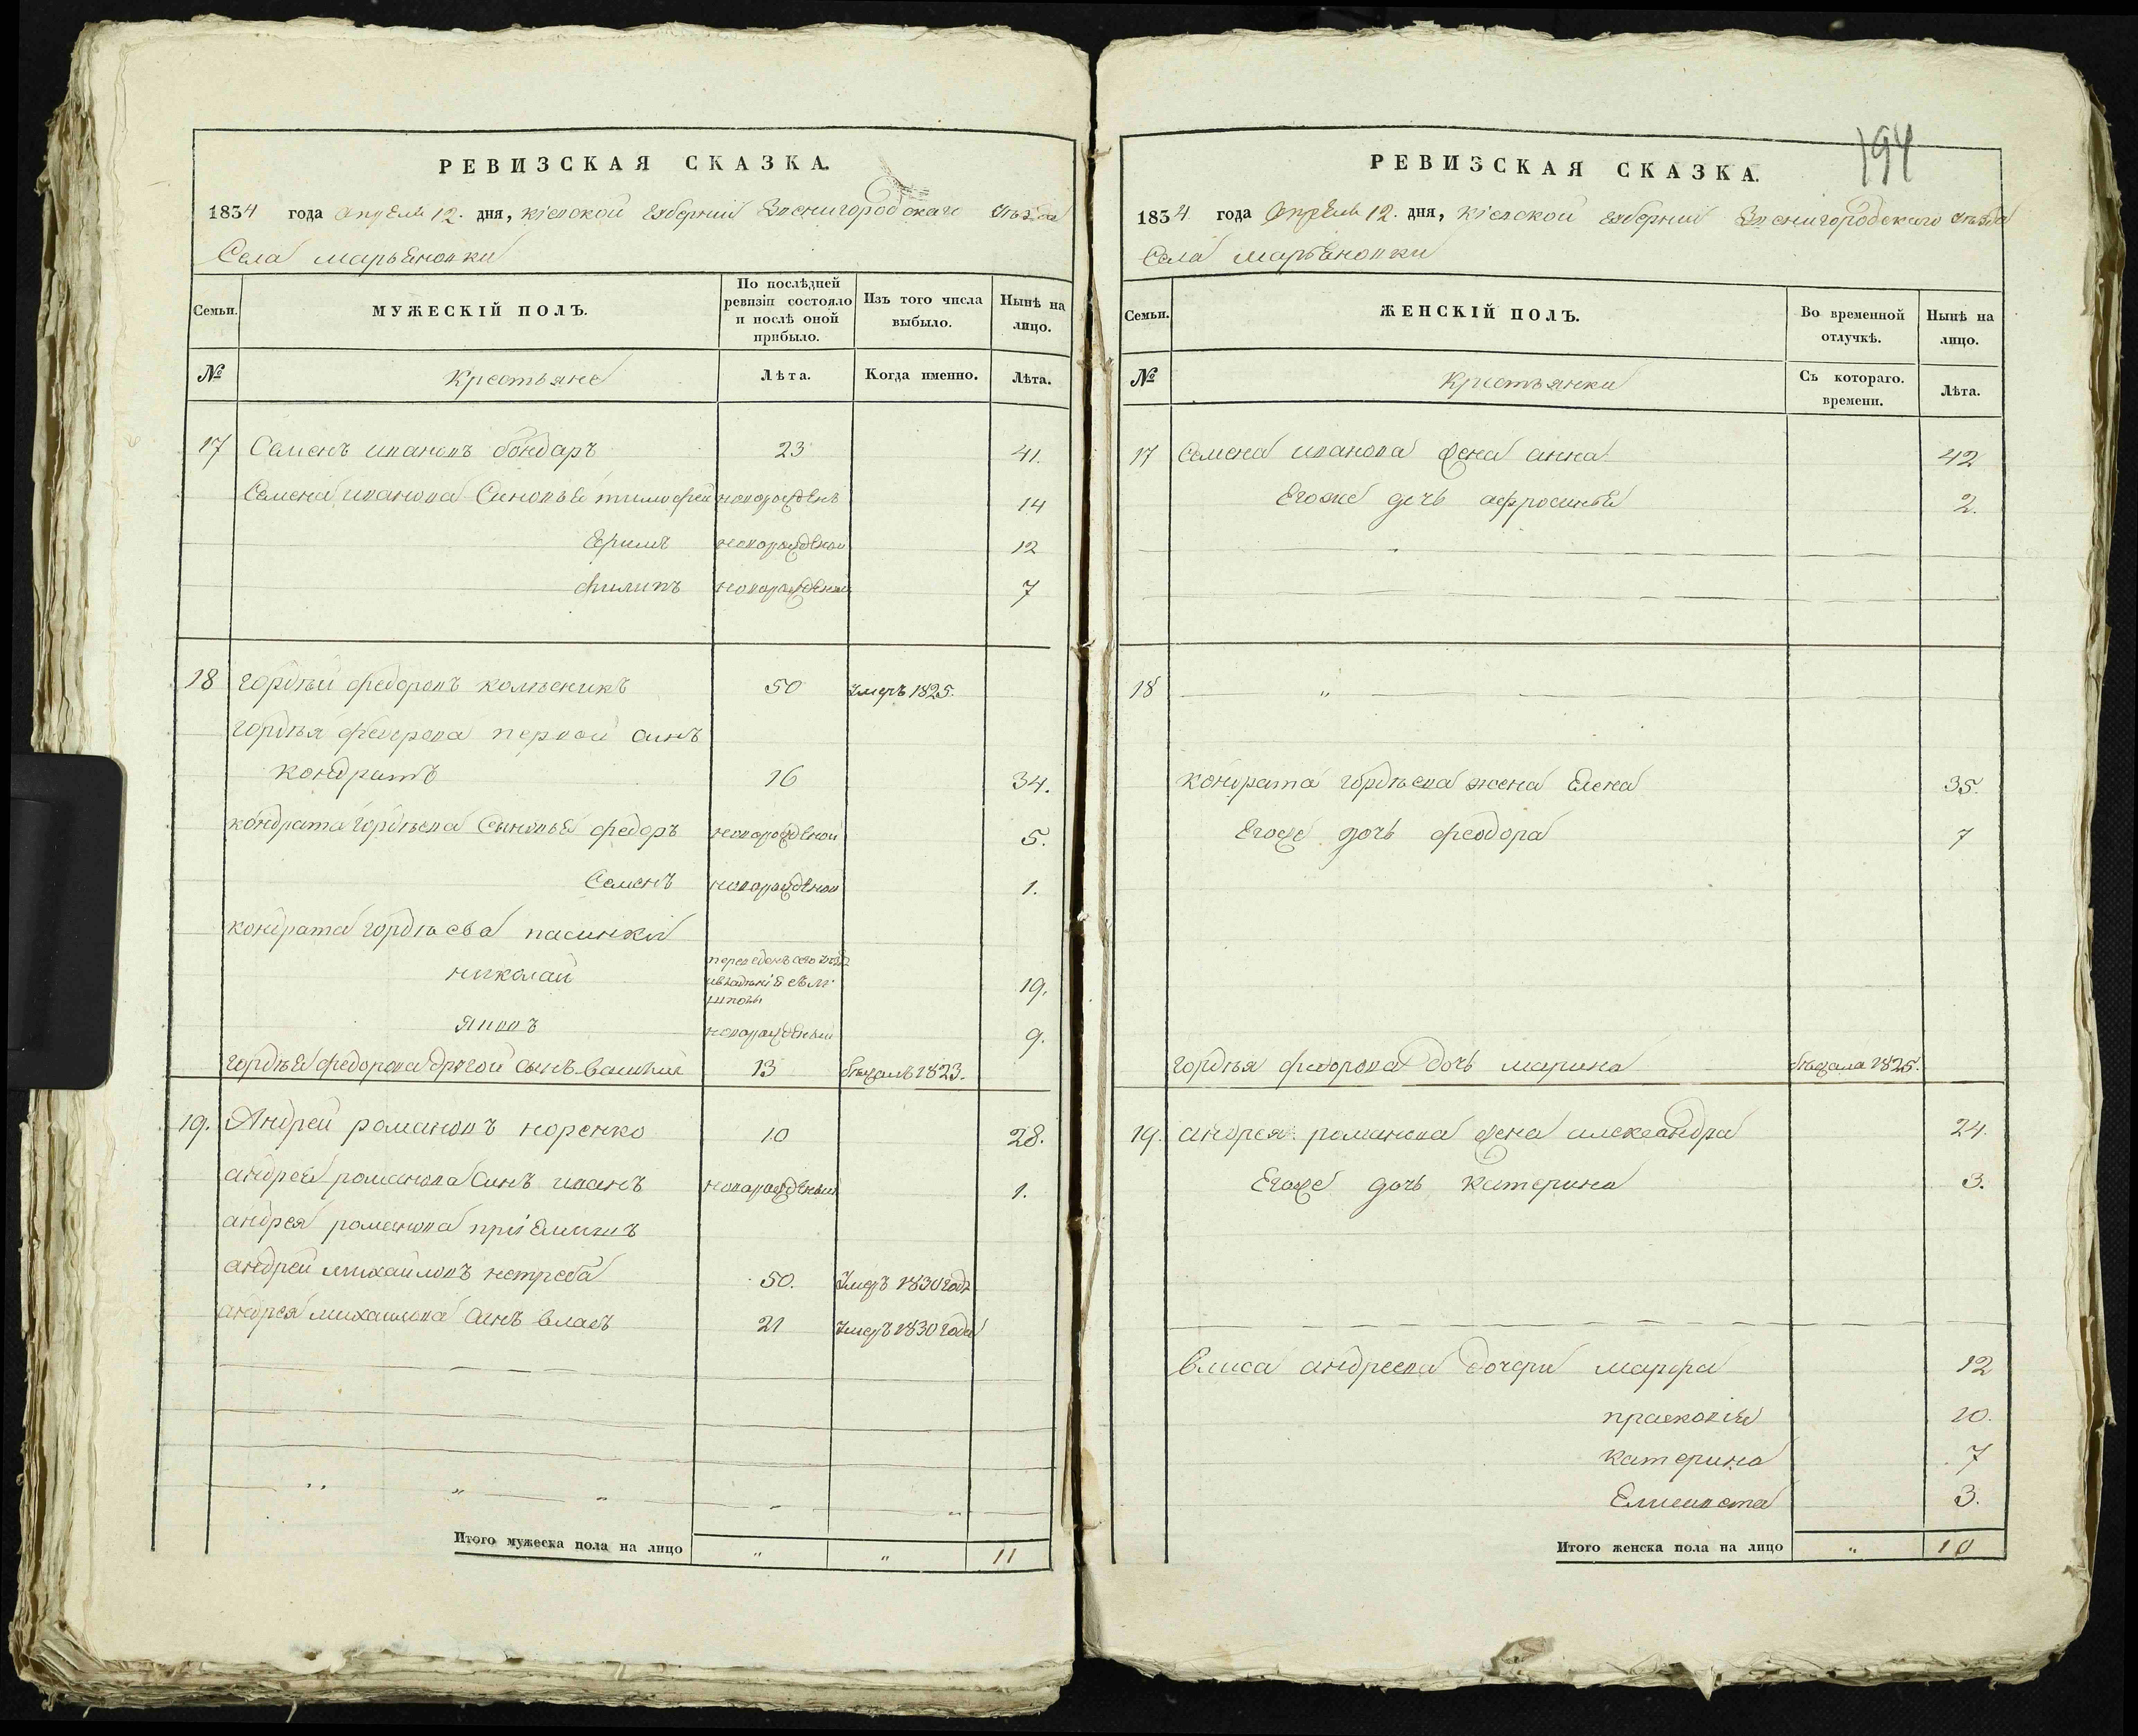 РЕВИЗСКАЯ СКАЗКА.
1834 года апреля 12. дня, кіевской губерніи Звенигородскаго уѣзда
Села марьяновки
Семьи.
МУЖЕСКІЙ ПОЛЪ.
По послѣдней ревизіи состояло и послѣ оной прибыло.
Изъ того числа выбыло.
Нынѣ на лицо.
№
Крестьяне
Лѣта.
Когда именно.
Лѣта.
17 Семенъ ивановъ бондаръ 23 41.
Семена иванова Синовья тимофей новорожденъ 14
Ефимъ новорожденой 12
филипъ новорожденой 7
18 гордѣй федоровъ колѣсникъ 50 умеръ 1825.
гордѣя федорова первой синъ
кондратъ 16 34.
кондрата гордѣева Сыновья федоръ новорожденой 5.
Семенъ новорожденой 1.
кондрата гордѣева пасинки
николай переведенъ 19.
яковъ новорожденый 9.
гордѣя федорова другой сынъ василий 13 бѣжалъ 1823.
19. Андрей романовъ норенко 10 28.
андрея романова Синъ иванъ новорожденый 1.
андрея романова пріемишъ
андрей михайловъ нетреба 50. умеръ 1830 года
андрея михайлова Синъ власъ 21 умеръ 1830 года
Итого мужеска пола на лицо " " 11
194
РЕВИЗСКАЯ СКАЗКА.
1834 года апреля 12. дня, кіевской губерніи Звенигородскаго уѣзда
Села марьяновки
Семьи.
ЖЕНСКІЙ ПОЛЪ.
Во временной отлучкѣ.
Нынѣ на лицо.
№
Крестьянки
Съ котораго. времени.
Лѣта.
17 Семена иванова жена анна 42
Егоже дочь афросинья 2.
18 "
кондрата гордѣева жена Елена 35.
Егоже дочь феодора 7
гордѣя федорова дочь марина бѣжала 1825.
19. андрея романова жена александра 24.
Егоже дочь катерина 3.
власа андреева дочери марфа 12
прасковія 10.
катерина 7
Елисавета 3.
Итого женска пола на лицо " 10